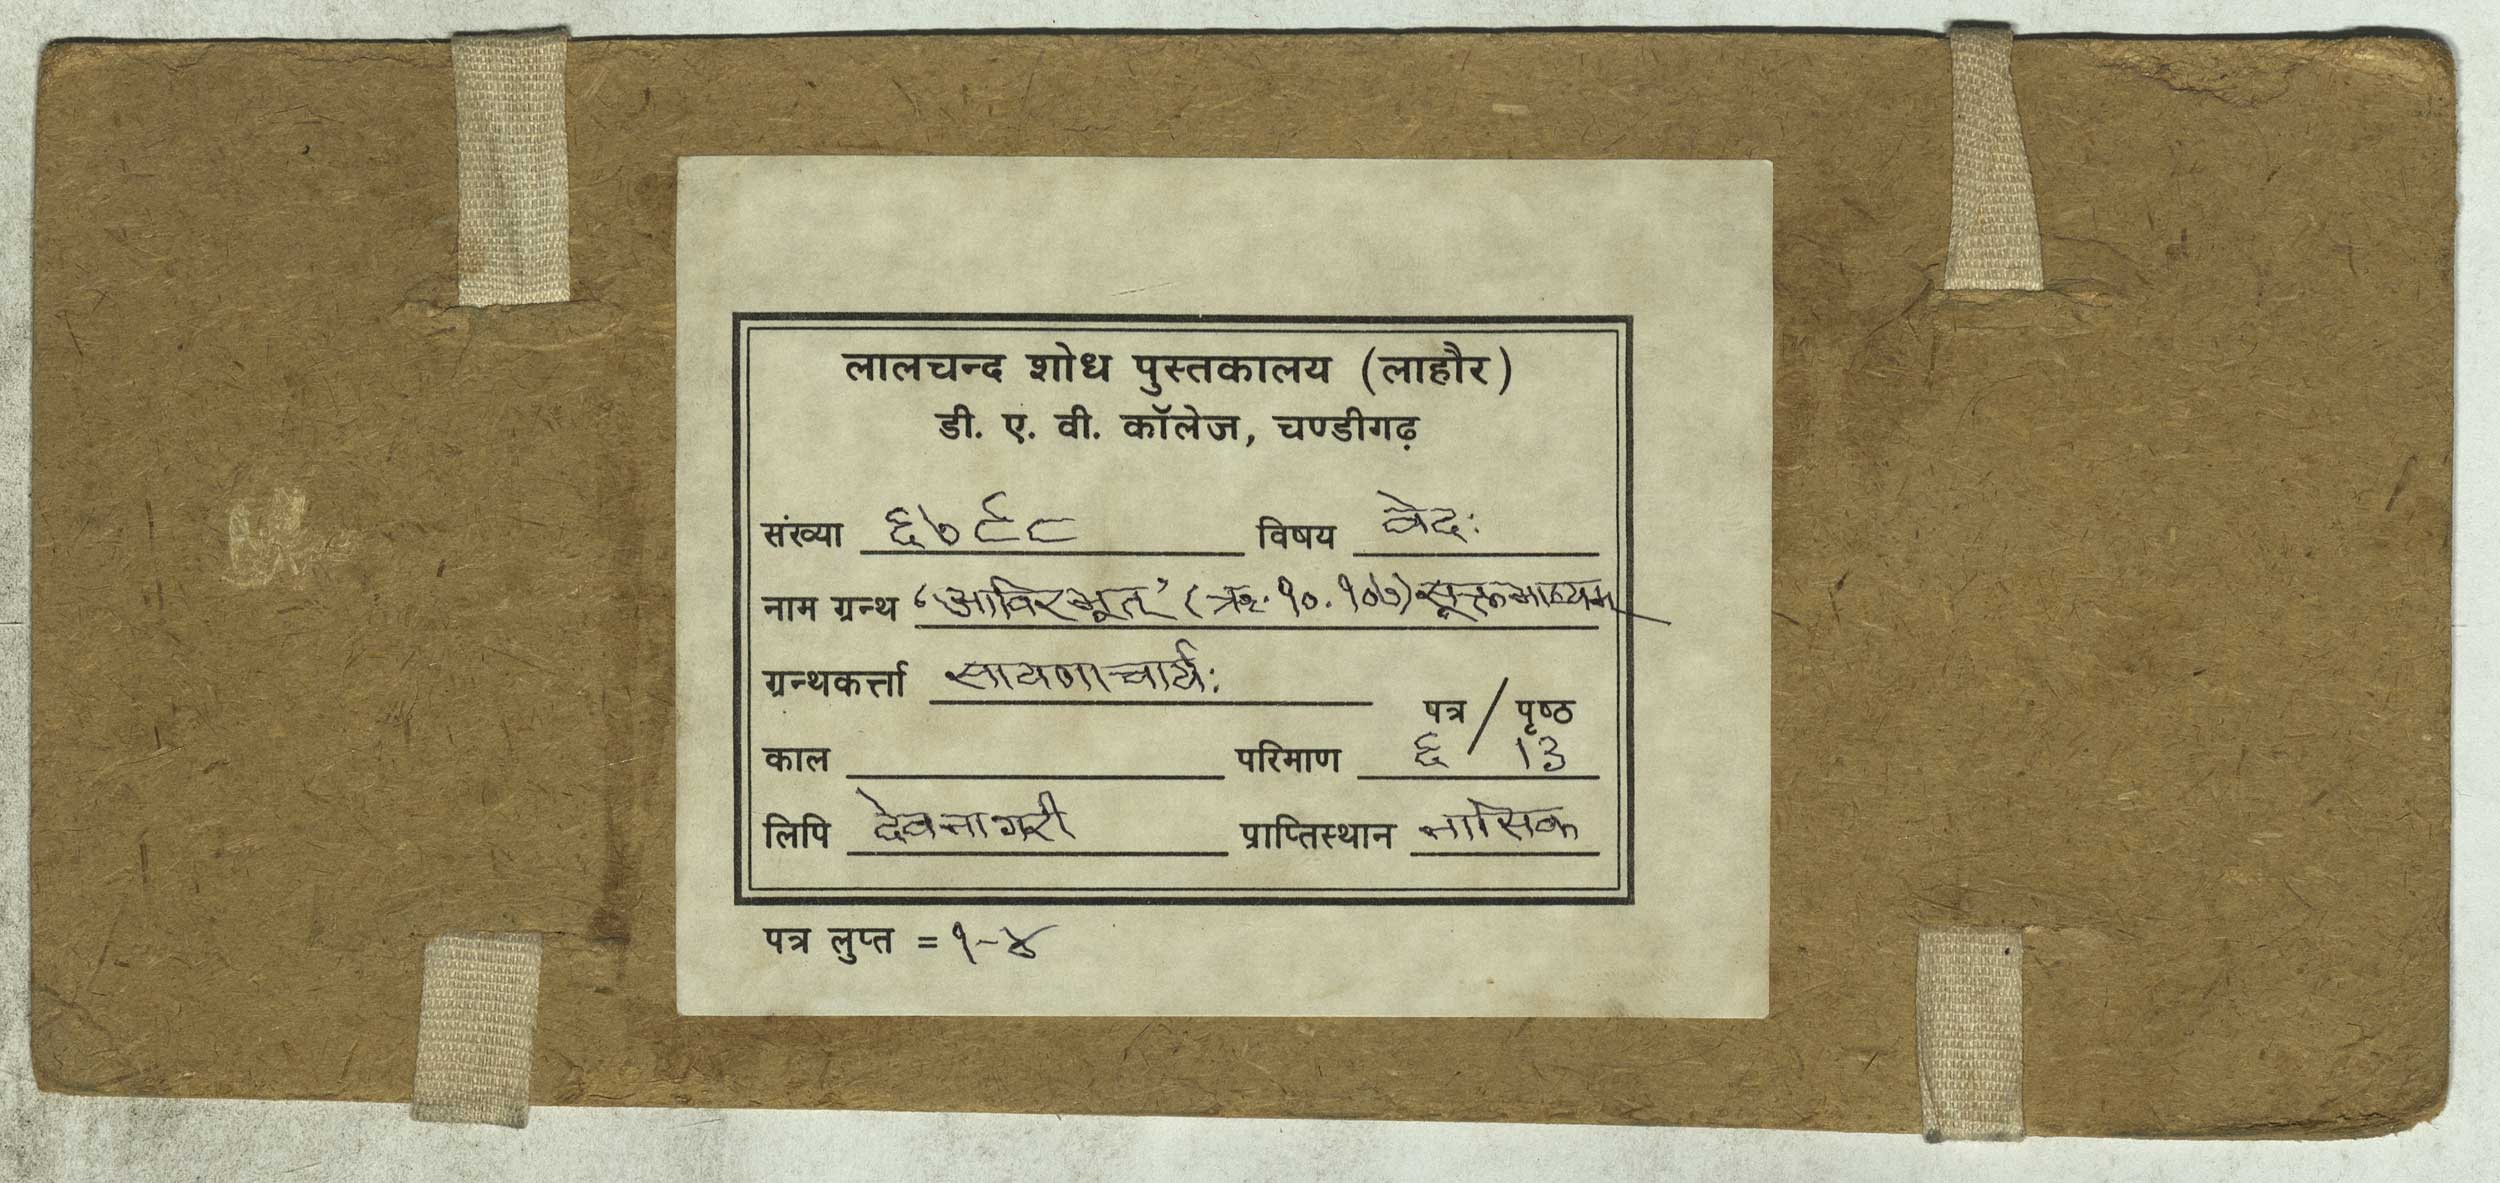 लालचन्द शोध पुस्तकालय (लाहौर)
डी. ए. वी. कॉलेज, चण्डीगढ़
संख्या ६७९८ विषय वेदः
नाम ग्रन्थ ‘आविरभूत्’ (ऋ. १०.१०७) सूक्तभाष्यम्
ग्रन्थकर्त्ता सायणाचार्यः
पत्र / पृष्ठ
काल परिमाण ६ / 13
लिपि देवनागरी प्राप्तिस्थान नासिक
पत्र लुप्त = १-४